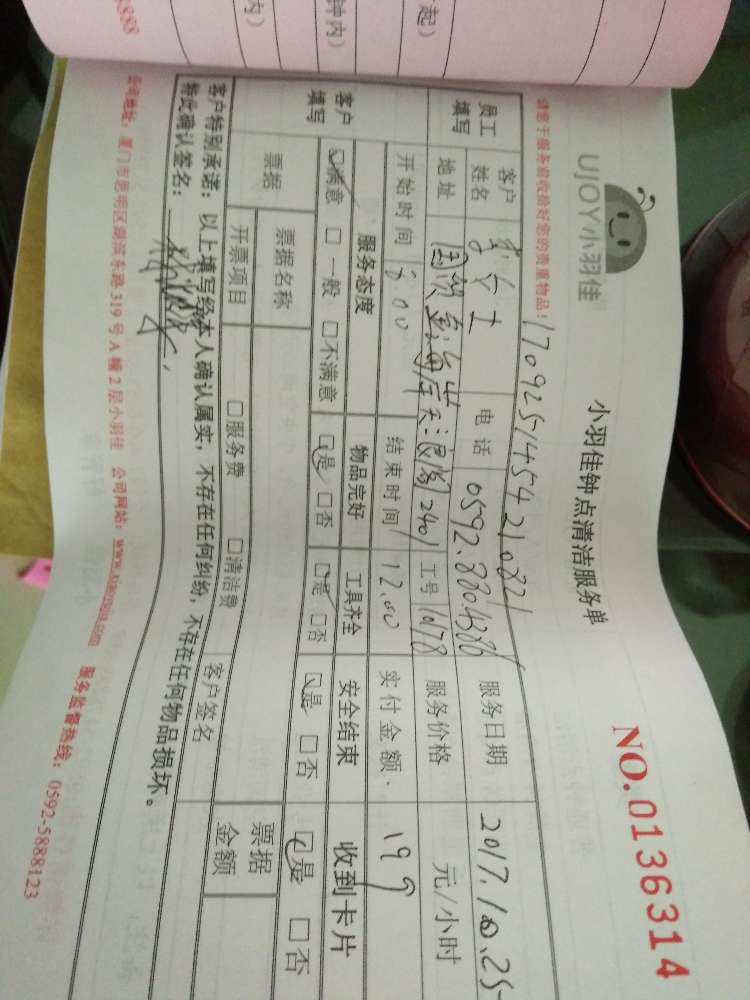 UJOY小羽佳
小羽佳钟点清洁服务单
NO.0136314
请您于服务前收捡好您的贵重物品！
员工填写
客户姓名
女士
电话
服务日期
2017.10.25
地址
2401
工号
1078
服务价格
元/小时
开始时间
8:00
结束时间
12.00
实付金额
199
客户填写
服务态度
物品完好
工具齐全
安全结束
收到卡片
满意 □ 一般 □ 不满意
是 □ 否
是 □ 否
是 □ 否
是 □ 否
票据
票据名称
客户签名
票据金额
开票项目
□ 服务费 □ 清洁费
客户特别承诺：以上填写经本人确认属实，不存在任何纠纷，不存在任何物品损坏。
特此确认签名：
公司地址：厦门市思明区湖滨东路319号A幢2层小羽佳 公司网站： 服务监督热线：0592-5888123
起）
钟内）
内）
8888